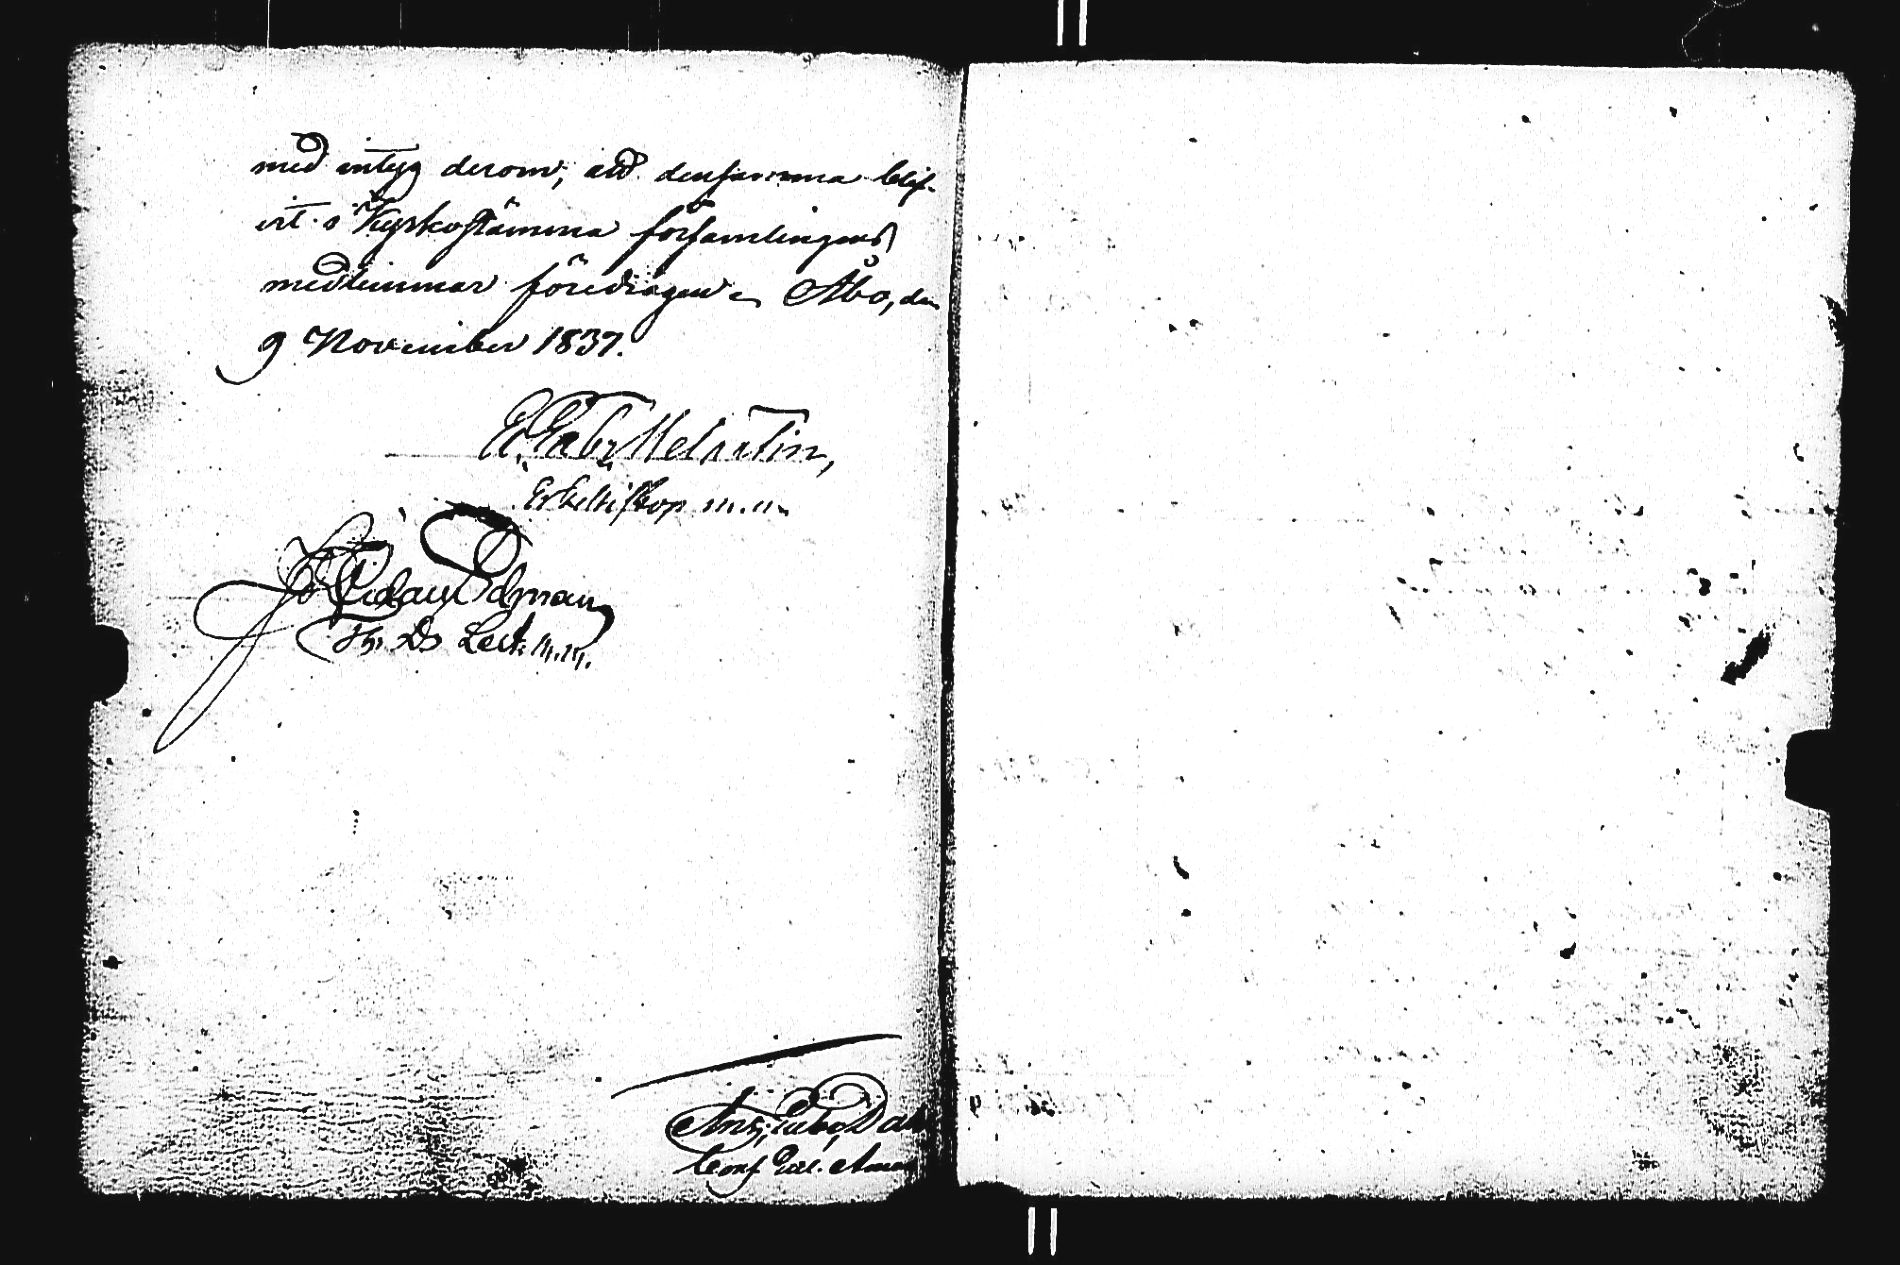 med intyg derom, att densamma blif-
vit i Kyrkostämma församlingens
medlemmar föredragen. Åbo, den
9 November 1837.
Er. Gabr. Melartin,
Erkebiskop m.m.
Edman
Th. D. Lect. m.m.
Gabr. Dah